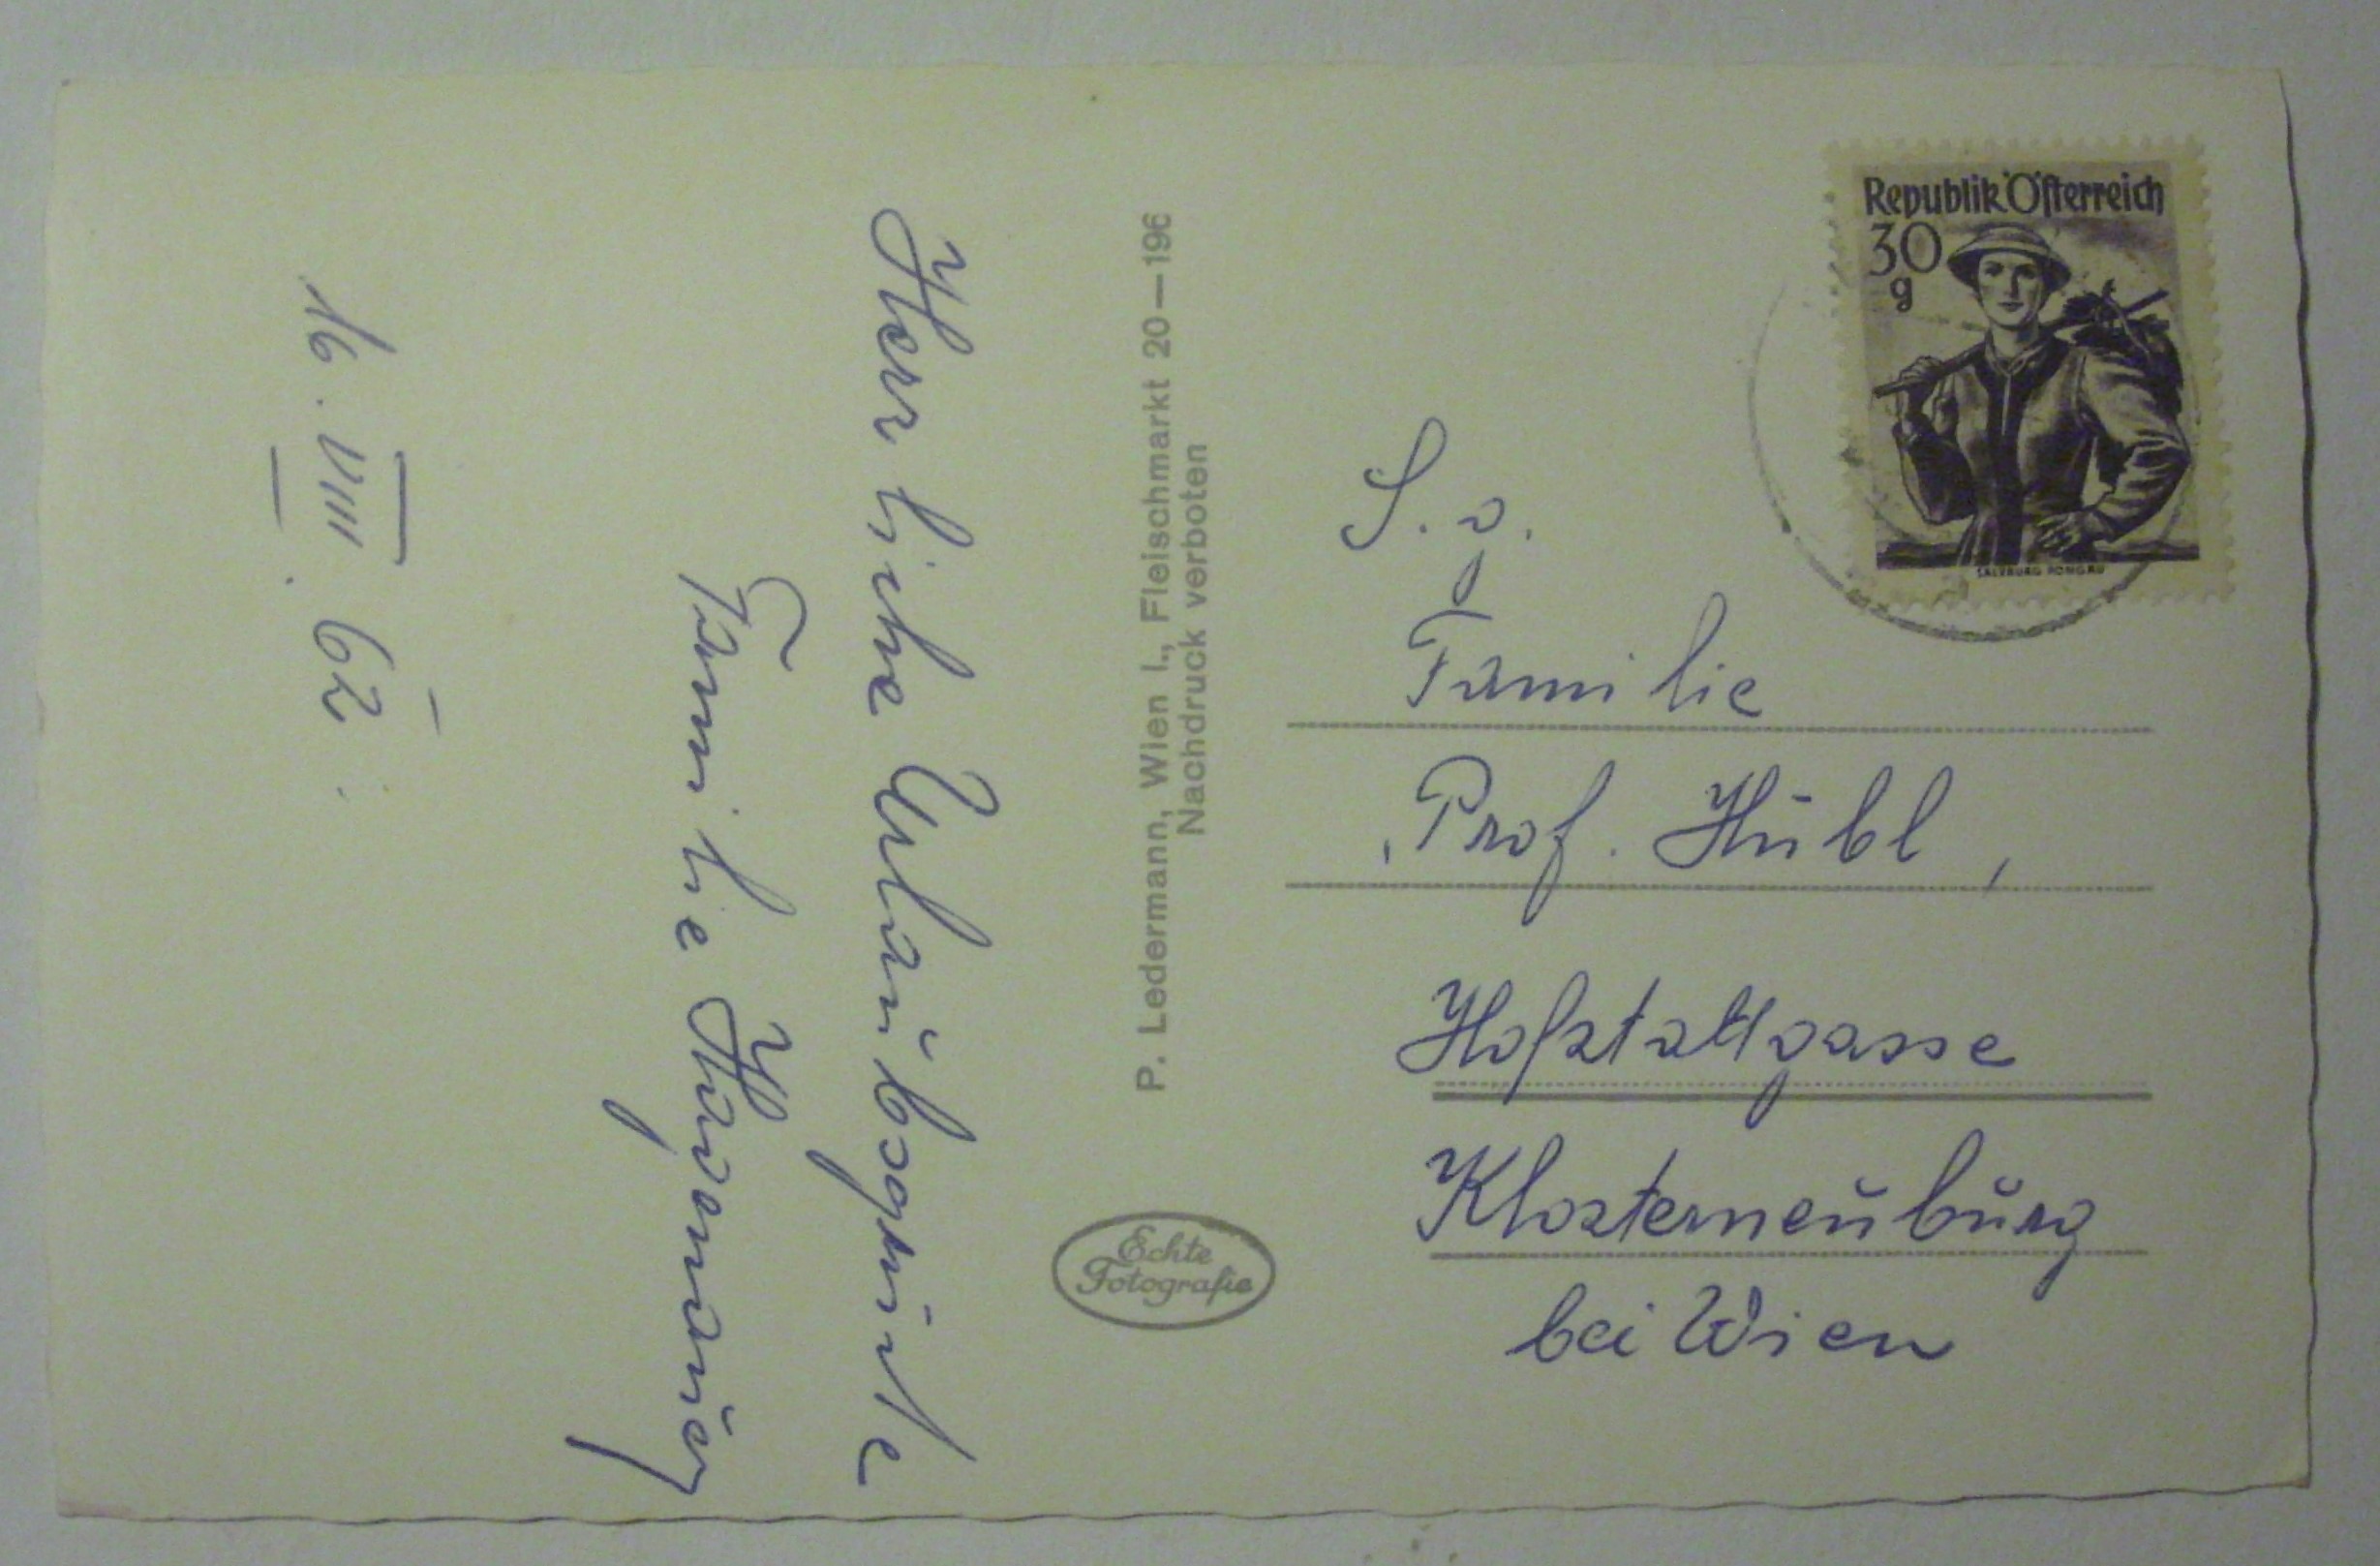 Herrliche Urlaubsgrüße
Familie
16. VIII. 62.
P. Ledermann, Wien I., Fleischmarkt 20—196
Nachdruck verboten
Echte
Fotografie
Republik Österreich
30
g
SALZBURG PONGAU
S. g.
Familie
Prof. Hübl,
Hofstattgasse
Klosterneuburg
bei Wien